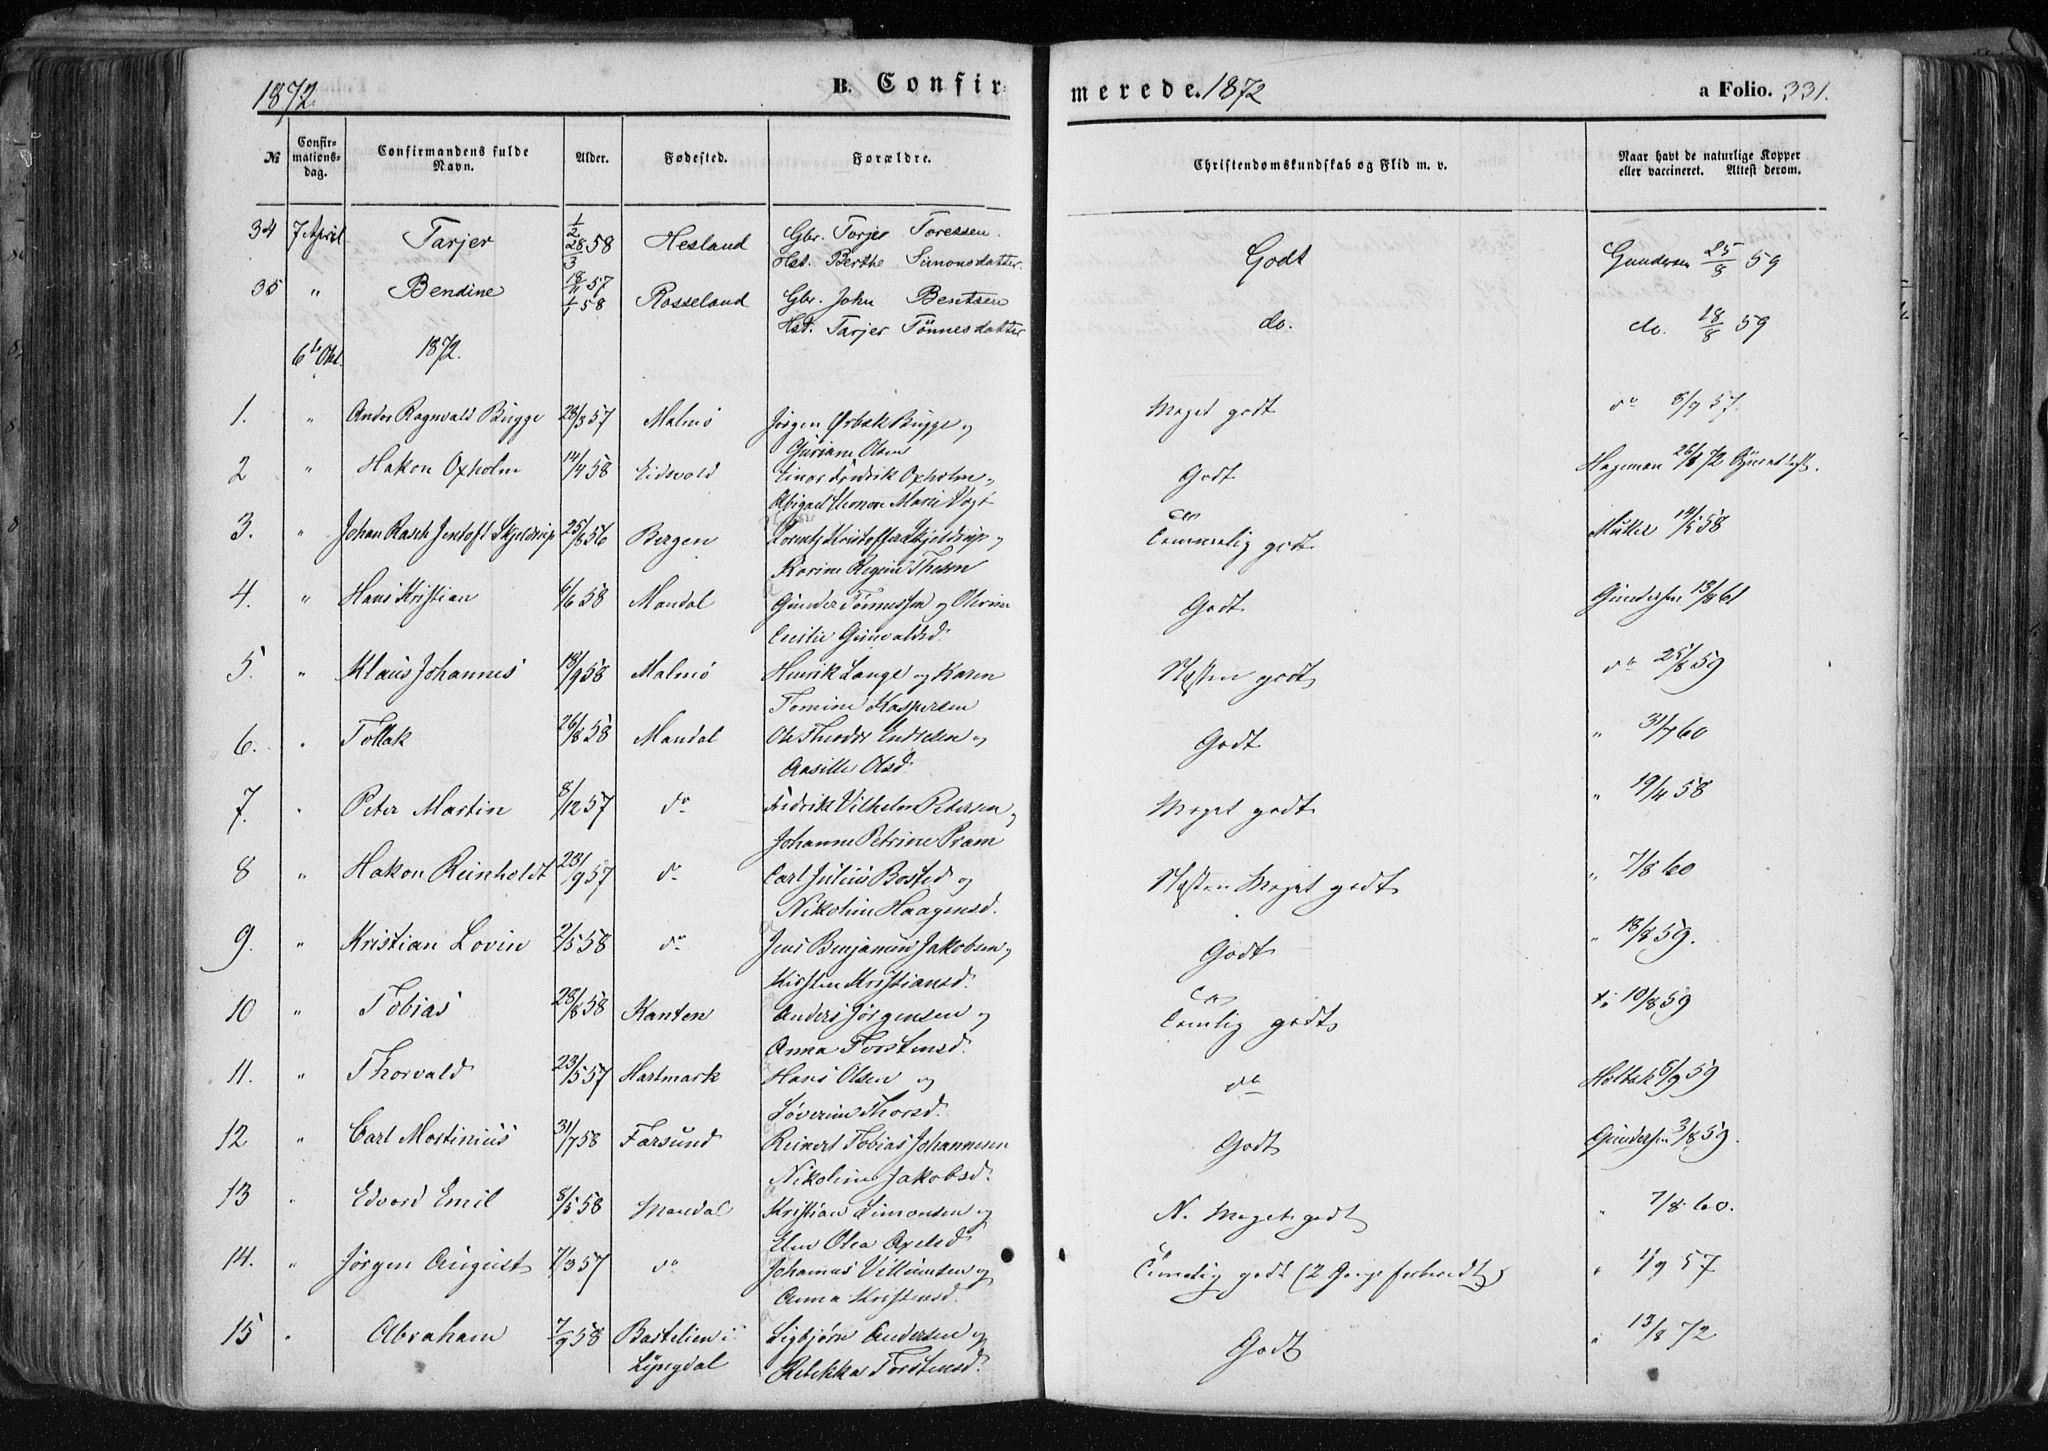 1872. B. Confirmerede. 1872 a Folio. 331.
№ Confirmationsdag. Confirmandens fulde Navn. Alder. Fødested. Forældre. Christendomskundskab og Flid m. v. Naar havt de naturlige Kopper eller vaccineret. Attest derom.
34 7 April Tarjer 1/2 28/3 58 Hesland Gbr. Tarjer Toressen. Godt Gundersen 25/8 59
Hst. Berthe Simonsdatter.
35 " Bendine 18/11 57 1/1 58 Rosseland Gbr. John Bentsen do. do. 18/8 59
Hst. Tarjer Tönnesdatter
6te Okt. 1872.
1. " Ragnvald Bugge 28/3 57 Malmö Jörgen Bugge og Meget godt do 8/9 57.
Guriane Olsen
2 " Hakon Oxholm 14/4 58 Eidsvold Einar Fredrik Oxholm Godt Hageman 26/8 72
Abigael Eleonore Marie Vogt
3. " Johan Rasch Jentoft Skjeldrup 25/8 56 Bergen Lorentz Kristoffer Skjeldrup og Temmelig godt Müller 14/5 58
Karine Regine Thesen
4. " Hans Kristian 6/6 58 Mandal Gunder Tönnessen og Olevine Godt Gundersen 13/8 61
Cecilie Gunvaldsd.
5. " Klaus Johannes 18/9 58 Malmö Henrik Lange og Karen Næsten godt do 25/8 59
Tomine Kaspersen
6. " Tollak 26/8 58 Mandal Ole Theodor Endresen og Godt " 31/7 60
Aasille Olsd.
7. " Peter Martin 8/12 57 do Fredrik Vilhelm Petersen og Meget godt " 19/4 58
Johanne Petrine Pram
8 " Hakon Reinholdt 23/9 57 do Carl Julius Bosted og Næsten Meget godt " 7/8 60
Nikoline Haagensd.
9. " Kristian Lovin 2/5 58 do Jens Benjamin Jakobsen og Godt " 18/8 59.
Kirsten Kristiansd.
10 " Tobias 28/8 58 Kanten Anders Jörgensen og Temlig godt 10/8 59
Anna Torstensd.
11. " Thorvald 23/5 57 Hartmark Hans Olsen og do Holbek 6/9 59
Söverine Thorsd.
12 " Carl Martinius 31/7 58 Farsund Reinert Tobias Johannesen Godt Gundersen 3/8 59.
Nikoline Jakobsd.
13 " Edvard Emil 8/5 58 Mandal Kristian Simonsen og N. Meget godt " 7/8 60.
Elen Olea Axelsd.
14. " Jörgen August 7/3 57 do Johannes Villumsen og Temelig godt (2 Gange forberedt) " 1/9 57
Anna Kristensd.
15 " Abraham 7/9 58 Bastelien i Sigbjörn Andersen og Godt " 13/8 72
Lyngdal Rebekka Torstensd.